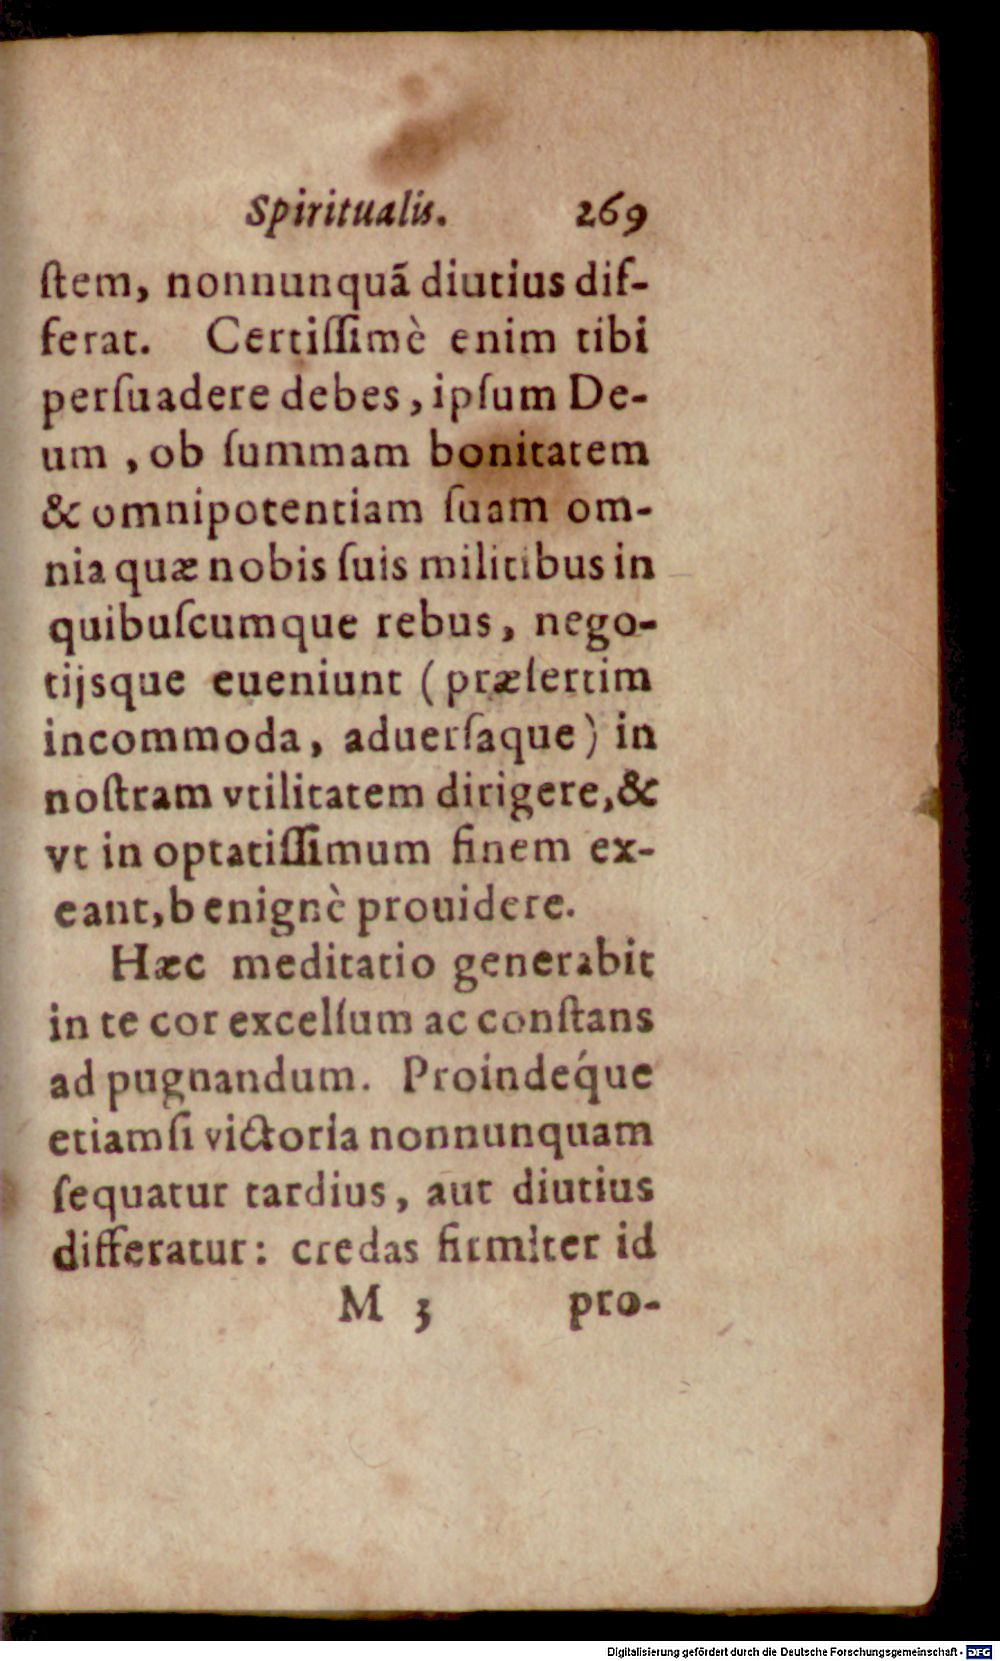 Spiritualis. 269
ſtem, nonnunquã diutius dif-
ferat. Certiſſimè enim tibi
perſuadere debes, ipſum De-
um , ob ſummam bonitatem
& omnipotentiam ſuam om-
nia quæ nobis ſuis militibus in
quibuſcumque rebus, nego-
tijsque eueniunt (præſertim
incommoda, aduerſaque) in
noſtram vtilitatem dirigere,&
vt in optatiſſimum finem ex-
eant,benignè prouidere.
Hæc meditatio generabit
in te cor excelſum ac conſtans
ad pugnandum. Proindéque
etiamſi victoria nonnunquam
ſequatur tardius, aut diutius
differatur: credas firmiter id
M 3 pro-
Digitalisierung gefördert durch die Deutsche Forschungsgemeinschaft - DFG